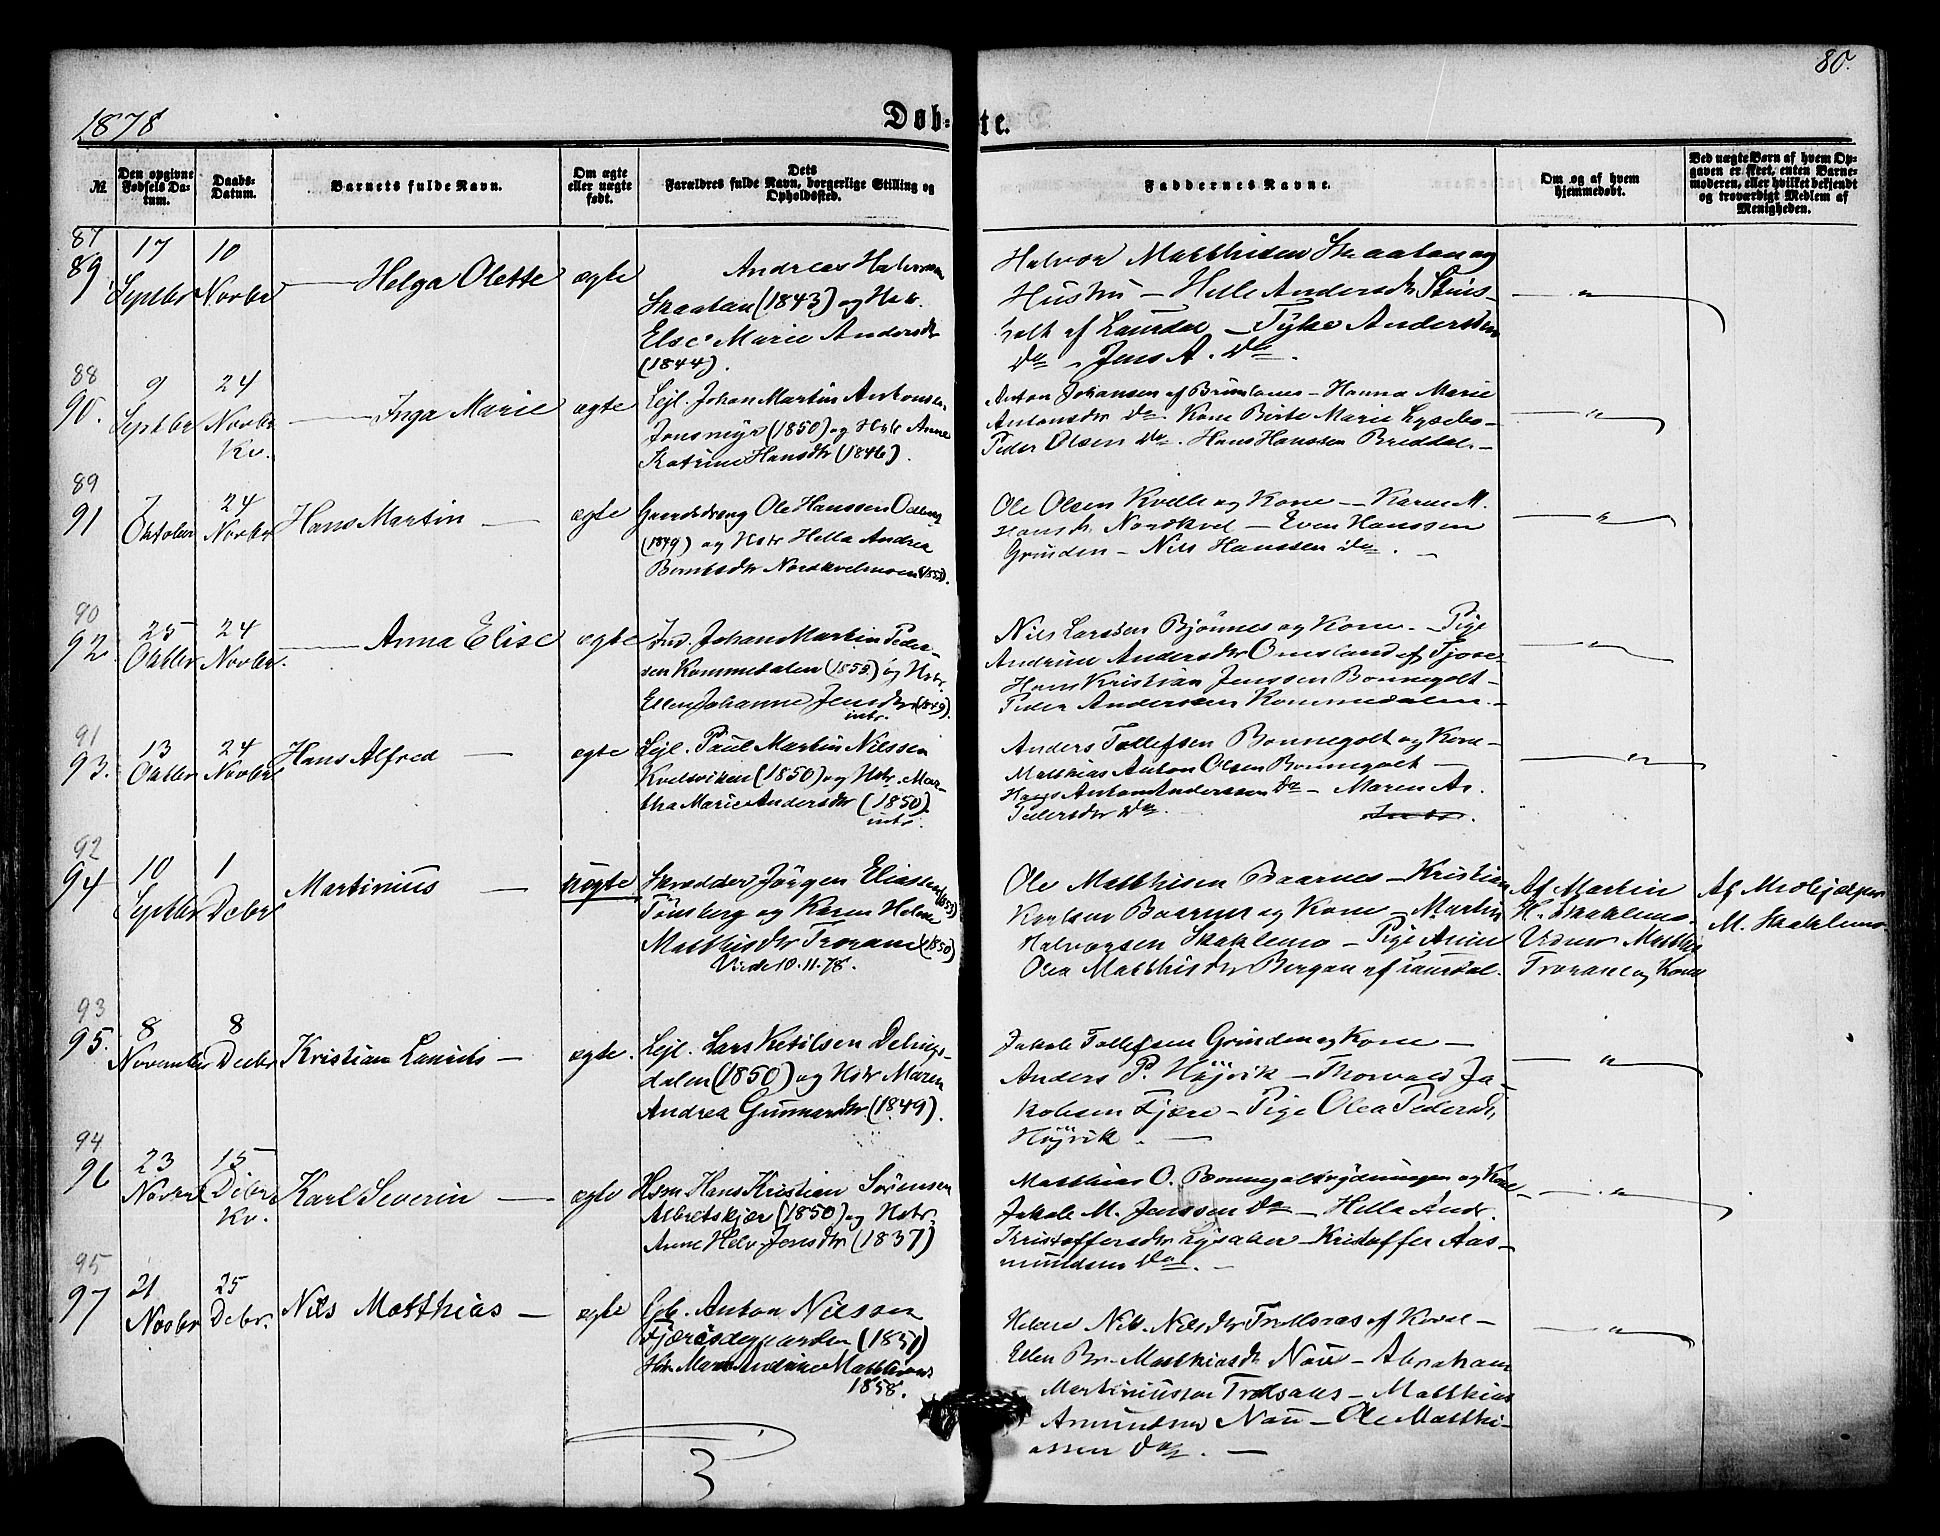 80.
1878
Døb-
te.
№.
Den opgivne Fødsels Datum.
Daabs-Datum.
Barnets fulde Navn.
Om ægte eller uægte født.
Dets Forældres fulde Navn, borgerlige Stilling og Opholdssted.
Faddernes Navne.
Om og af hvem hjemmedøbt.
Ved uægte Børn af hvem Opgaven er skeet, enten Barnemoderen, eller hvilket bekjendt og troværdigt Medlem af Menigheden.
87
89 17 Septbr 10 Novbr Helga Olette ægte
Andreas Halvorsen
Skaatan (1843) og Hstr.
Else Marie Andersdtr
(1844).
Halvor Matthisen Skaatan og
Hustru - Helle Andersdtr Stuis-
holt af Laurdal - Anderssen
Do - Jens A. Do.
88
90. 9 Septbr 24 Novbr Kv. Inga Marie ægte
Lejl. Johan Martin Antonsen
Jonsmyr (1850) og Hstr Anne
Katrine Hansdtr (1846).
Anton Johansen af Brunlanes - Hanna Marie
Antonsdtr Do. Kone Berte Marie Lysebo -
Peder Olsen Do. Hans Hanssen Breddal -
89
91 7 Oktober 24 Novbr Hans Martin - ægte
Gaardsdreng Ole Hanssen
(1849) og Hstr Hella Andrea
Berntsdtr Nordkvelmoen
Ole Olsen Kvelle og Kone - Karen M.
Hansdtr. Nordkvel - Even Hanssen
Grinden - Nils Hanssen Do. -
90
92. 25 Oktbr 24 Novbr. Anna Elise ægte
Ind. Johan Martin Peder-
sen Kommedalen (1853) og Hstr.
Ellen Johanne Jensdtr (1849).
intr.
Nils Larssen Bjønnes og Kone - Pige
Andrine Andersdtr Omsland af Tjose -
Hans Kristian Jenssen Bonnegolt -
Peder Anderssen Kommedalen. -
91
93. 13 Oktbr 24 Novbr Hans Alfred - ægte
Lejl. Paul Martin Nilssen
Kvelsviken (1850) og Hstr. Mar-
tha Marie Andersdtr (1850).
intr.
Anders Tollefsen Bonnegolt og Kone -
Matthias Anton Olsen Bonnegolt -
Hans Anton Anderssen Do - Maren An.
Pedersdtr Do.
92
94 10 Septbr 1 Debr Martinius - uægte
Skrædder Jörgen Eliassen
Tönsberg og Karen Helene
Matthisdtr Trorane (1850)
Virde 10.11.78.
Ole Matthisen Baarnes - Kristian
Karlsen Baarnes og Kone - Martin
Halvorsen Skaklemo - Pige Anne
Olea Matthisdtr Bergan af Laurdal.
Af Martin
H. Skaklemo.
Matthis
Trorane og Kone
Af Medhjælper
M. Skaklemo
93
95. 8 November 8 Decbr Kristian Laurits - ægte.
Lejl. Lars Ketilsen
dalen (1850) og Hstr Maren
Andrea Gunnarsdtr (1849).
Jakob Tollefsen Grinden og Kone -
Anders P. Höjvik - Thorvald Ja-
kobsen Fjære - Pige Olea Pedersdtr,
Höjvik. -
94
96 23 Novbr 15 Debr Kv. Karl Severin - ægte
Hsm Hans Kristian Sörensen
Albretskjær (1850) og Hstr.
Anne Helv. Jensdtr (1837)
Matthias O. Bonnegoltrydningen og Kone -
Jakob M. Jenssen Do - Hella Andr.
Kristoffersdtr Lysaker - Kristoffer Aas-
mundsen Do. -
95
97 21 Novbr 25 Debr. Nils Matthias - ægte
Gb. Anton Nilssen
(1851)
Hstr. Maren Andrine
1858.
Helene Nik. Nilsdtr Trollsaas af Kvel -
Ellen Br. Matthiasdtr Nau - Abraham
Martiniussen Trolsaas - Matthias
Amundsen Nau - Ole Matthi-
assen Do. -
3